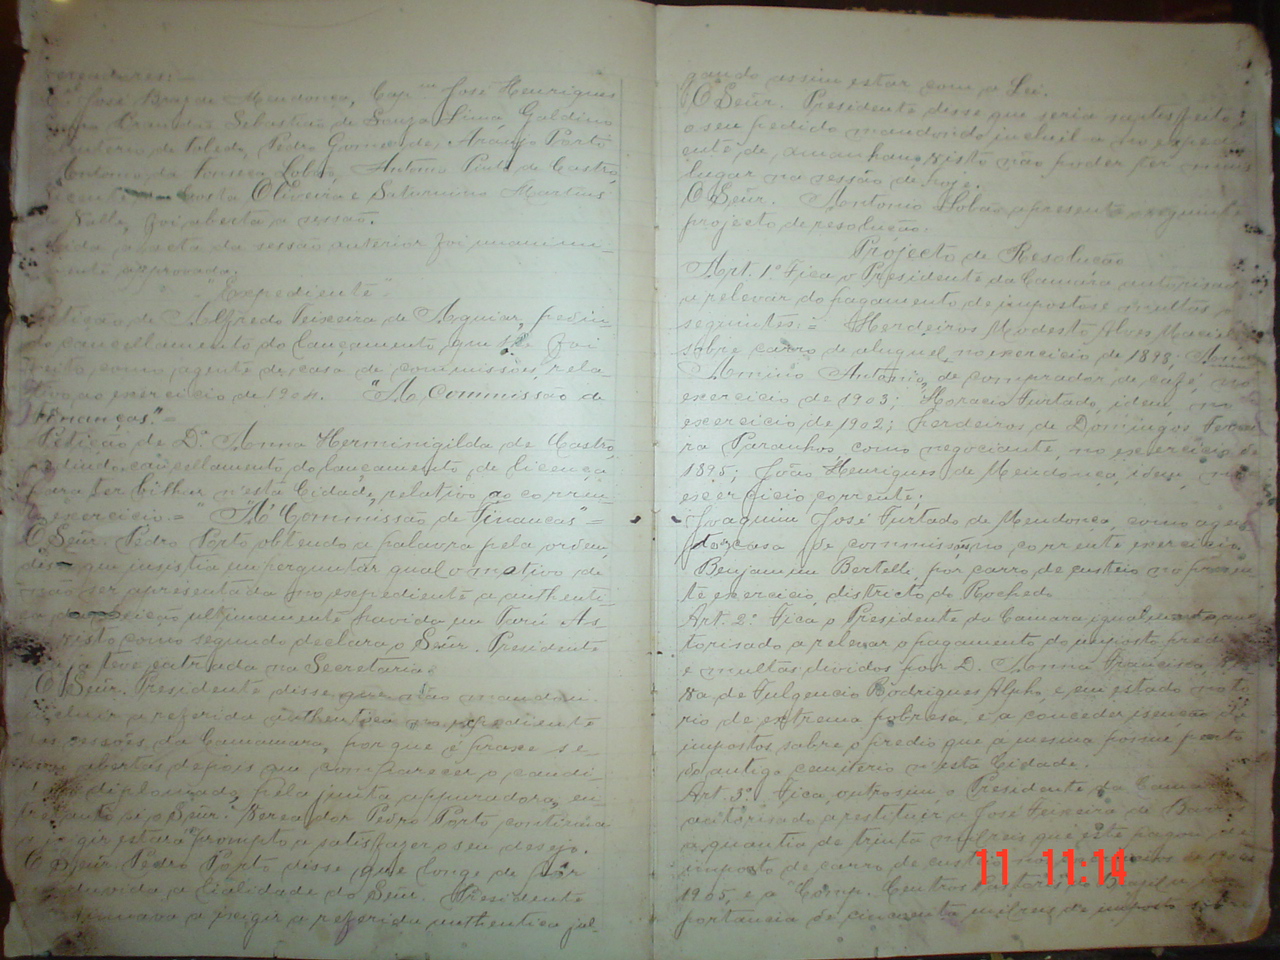 vereadores:
José Braz de Mendonça, Cap.m José Henriques
Brandão, Sebastião de Souza Lima, Galdino
de Toledo, Pedro Gomes de Araujo Porto
Antonio da Fonseca Lobão, Antonio Pinto de Castro
Costa Oliveira e Saturnino Martins
Valle, foi aberta a sessão.
Lida a acta da sessão anterior foi unanime-
mente approvada.
"Expediente"
Petição de Alfredo Teixeira de Aguiar, pedin-
do cancellamento do lançamento que lhe foi
feito como agente de casa de commissões, rela-
tivo ao exercicio de 1904. "A Commissão de
Finanças" =
Petição de D. Anna Herminigilda de Castro
pedindo cancellamento do lançamento de licença
para ter bilhar n'esta Cidade, relativo ao corren-
exercicio. = "A' Commissão de Finanças" =
O Señr. Pedro Porto obtendo a palavra pela ordem,
disse que insistia em perguntar qual o motivo de
não ser apresentada no expediente a authenti-
ca da eleição ultimamente havida em
visto como segundo declara o Señr. Presidente
já teve entrada na Secretaria.
O Señr. Presidente disse que não mandou
incluir a referida authentica no expediente
das sessões da Camamara, porque é praxe se-
rem abertas depois que comparecer o candi-
dato diplomado, pela junta appuradora, en-
tretanto si o Señr. Vereador Pedro Porto continúa
a exigir estará prompto a satisfazer o seu desejo.
O Señr. Pedro Porto disse que longe de pôr
em duvida a lialidade do Señr. Presidente
continuava a exigir a referida authentica jul-
gando assim estar com a Lei.
O Señr. Presidente disse que seria satisfeito
o seu pedido mandando incluil-a no expedi-
ente de amanhan, visto não poder ter mais
lugar na sessão de hoje.
O Señr. Antonio Lobão apresenta o seguinte
projecto de resolução.
Projecto de Resolução
Art. 1º Fica o Presidente da Camara autorisado
a relevar do pagamento de impostos e multas os
seguintes: = Herdeiros Modesto Alves Maciel
sobre carro de aluguel, no exercicio de 1898;
Antonio, de comprador de café no
exercicio de 1903; Horacio Furtado, idem, no
exercicio de 1902; herdeiros de Domingos Ferrei-
ra Paranhos como negociante, no exercicio de
1895; João Henriques de Mendonça, idem, no
exercficio corrente;
Joaquim José Furtado de Mendonça, como agen-
te casa de commissão no corrente exercicio,
Benjamim Bertelli, por carro de custeio no presen-
te exercicio, districto do Rochedo.
Art. 2º Fica o Presidente da Camara igualmente au-
torisado a relevar o pagamento do imposto predial
e multas devidos por D. Anna Francisca, viu-
va de Fulgencio Rodrigues em estado noto-
rio de extrema pobresa, e a conceder isenção de
impostos sobre o predio que a mesma possue perto
do antigo cemiterio n'esta Cidade.
Art. 3º Fica, outrosim o Presidente da Camara
autorisado a restituir a José Teixeira de
a quantia de trinta mil reis que este pagou de
imposto de carro de custeio no
1905, e a "Comp. Centros Pastoris do Brasil" a im-
portancia de cincoenta mil reis de imposto sobre
11 11:14